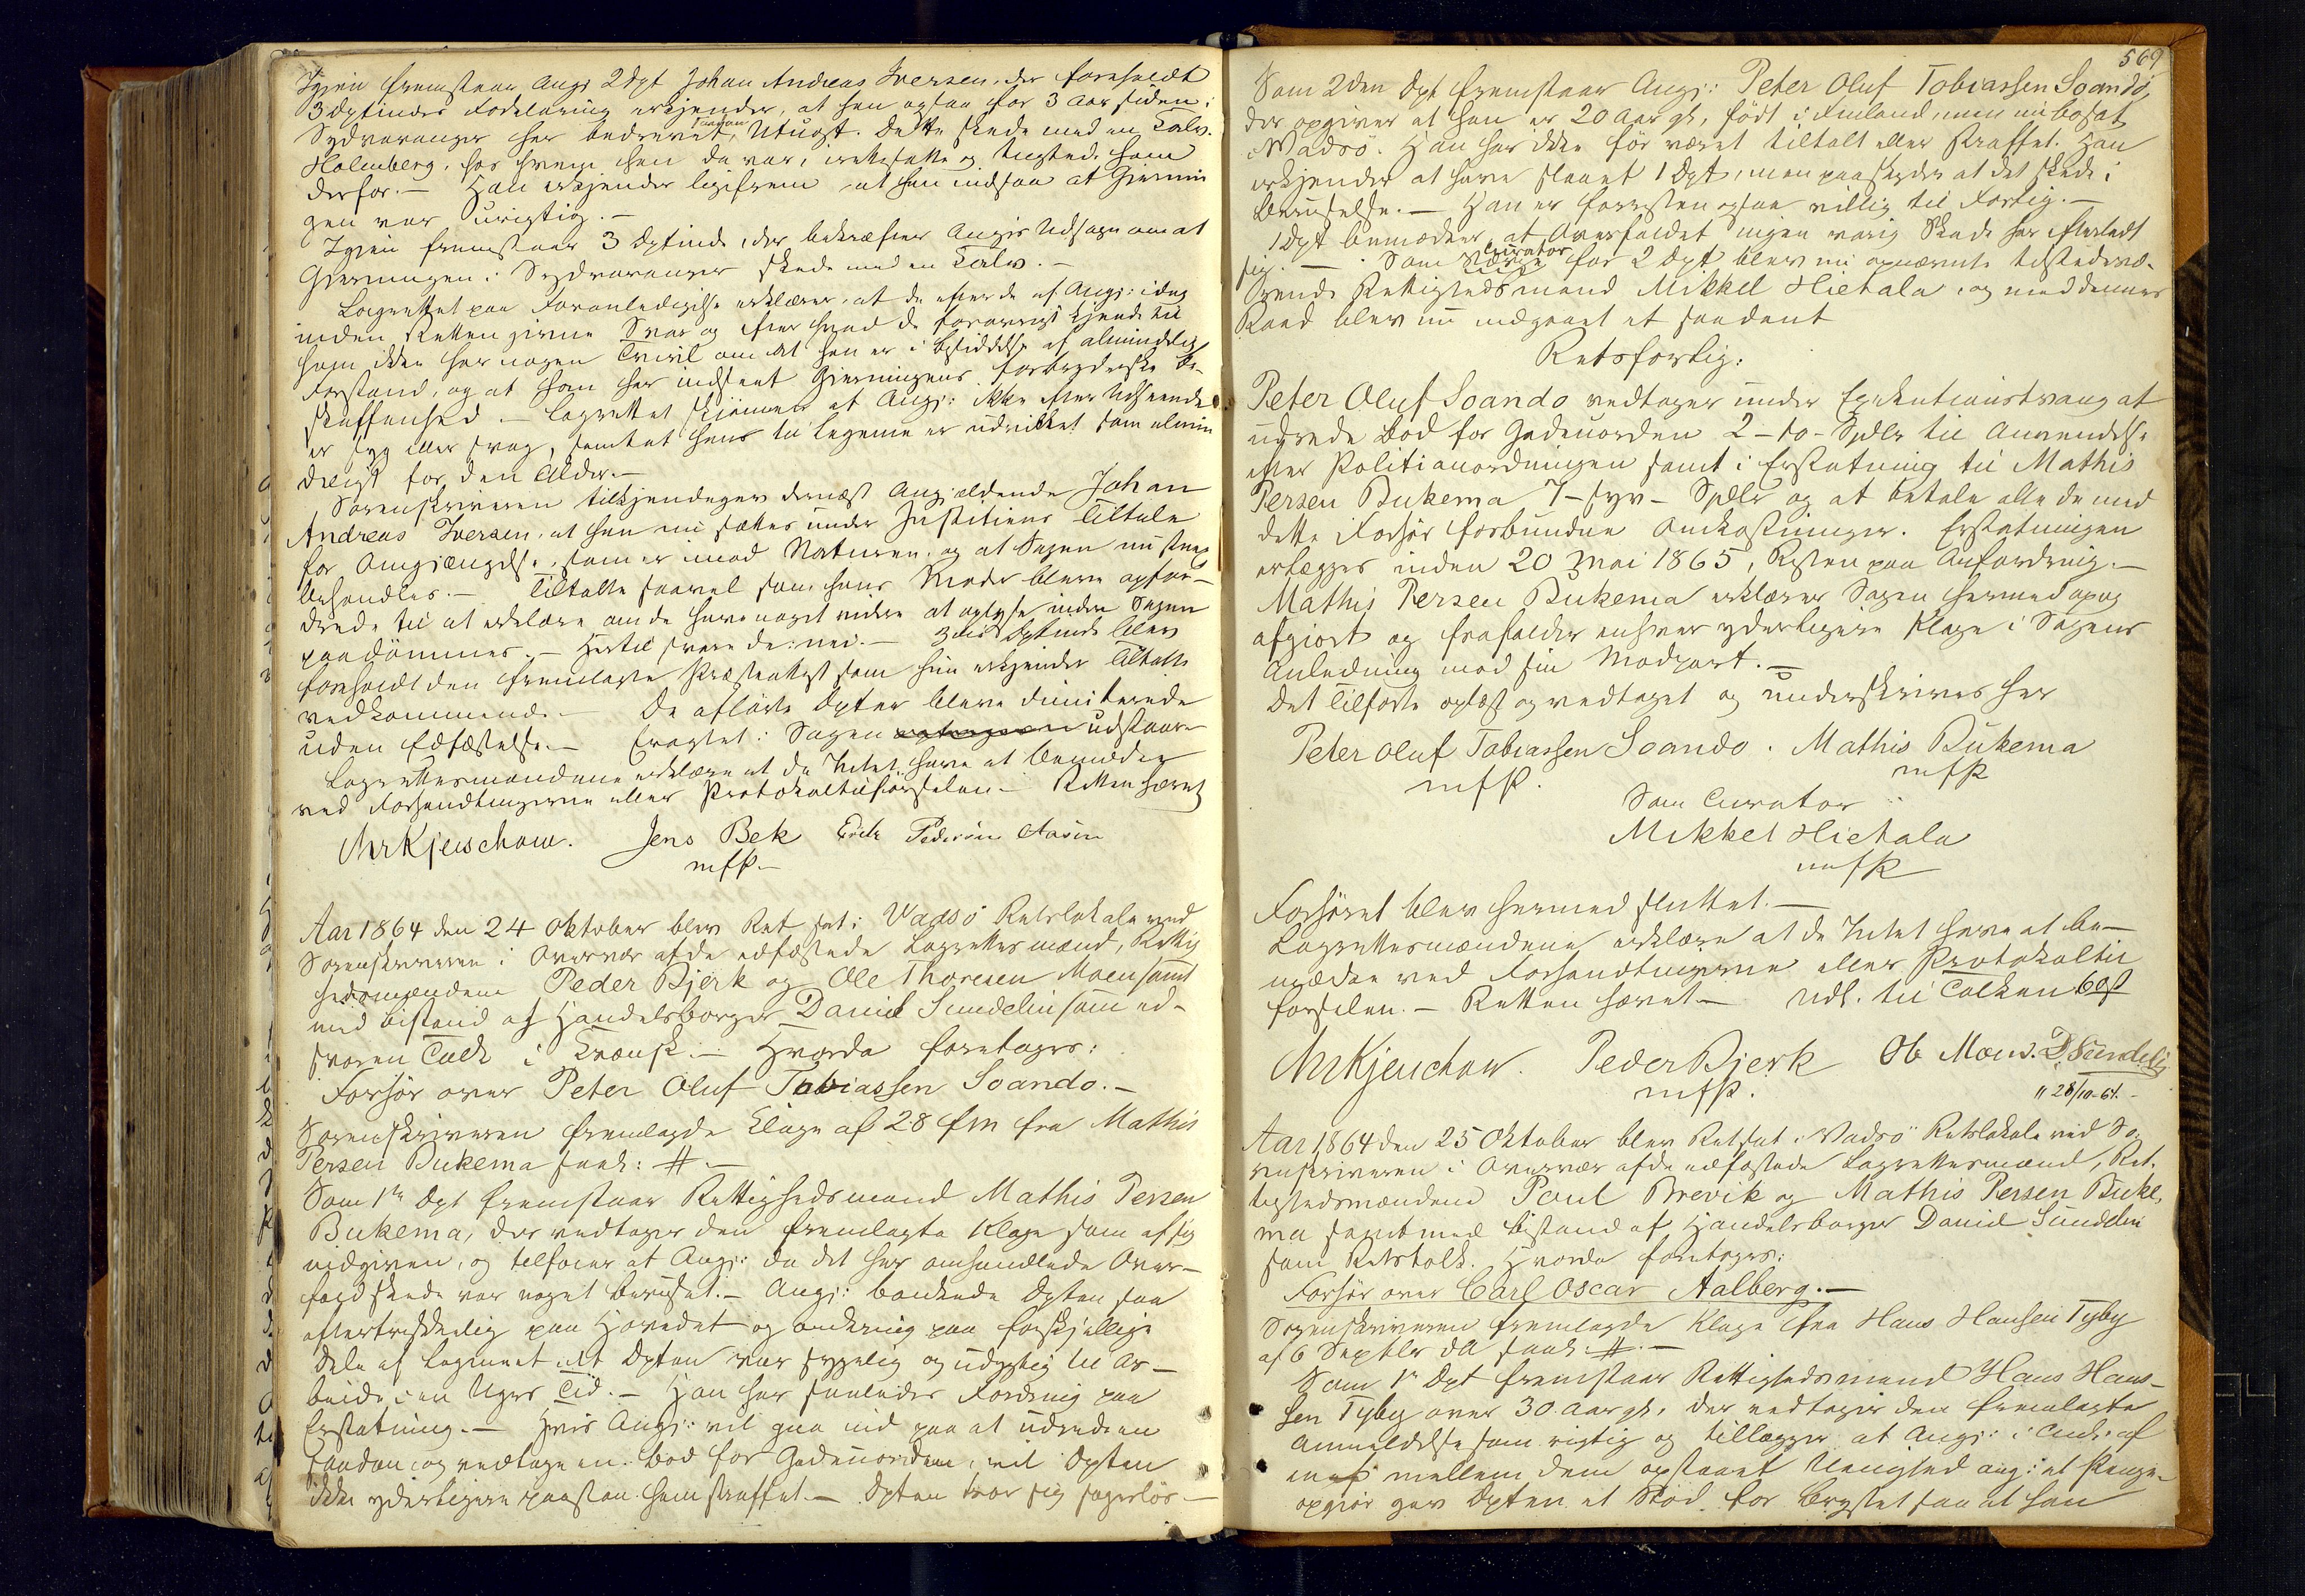 Igjen fremstaar Angj 2 Dpt Johan Andreas Iversen, der foreholdt
3 Dptindes Forklaring erkjender, at han ogsaa for 3 Aar siden i
Sydvaranger har bedrevet saadan Utugt. Dette skede med en Kalv.
Holmberg, hos hvem han da var, irettesatte og tugtede ham
derfor. — Han erkjender ligefrem at han indsaa at Gjernin
gen var urigtig. —
Igjen fremstaar 3 Dptinde, der bekræfter Angjs Udsagn om at
Gjerningen i Sydvaranger skede med en Kalv. —
Lagrettet paa Foranledigelse erklærer, at de efter de af Angj: idag
inden Retten givne Svar og efter hvad de forøvrigt kjende til
ham ikke har nogen Tvivl om at han er i Besiddelse af almindelig
Forstand, og at han har indseet Gjerningens forbryderske Be-
skaffenhed. — Lagrettet skjønner at Angj: ikke efter Udseende
er syg eller svag, samt at hans Legeme er udviklet som almin
deligt for den Alder. —
Sorenskriveren tilkjendegav dernæst Angjældende Johan
Andreas Iversen, at han nu sættes under Justitiens Tiltale
for Omgjængelse, som er imod Naturen, og at Sagen nu strax
behandles. — Tiltalte saavel som hans Moder bleve opfor-
drede til at erklære om de have noget videre at oplyse inden Sagen
paadømmes. — Hertil svare de: nei. — 3die Dptinde blev
foreholdt den fremlagte Præsteattest som hun erkjender Tiltalte
vedkommende. — De afhørte Dpter bleve dimitterede
uden Edfæstelse. — Eragtet: Sagen udstaar
Lagrettesmændene erklære at de Intet have at bemærke
ved Forhandlingerne eller Protokoltilførselen. — Retten hævet
MrKjerschow. Jens Bek Erik Pedersen Aasen
mfP. —
Aar 1864 den 24 Oktober blev Ret sat i Vadsö Retslokale ved
Sorenskriveren i Overvær af de edfæstede Lagrettesmænd, Rettig
hedsmændene Peder Bjerk og Ole Thoresen Moen samt
med Bistand af Handelsborger Daniel Sundelin som ed-
svoren Tolk i Kvænsk. — Hvorda foretages:
Forhør over Peter Oluf Tobiassen Soando. —
Sorenskriveren fremlagde Klage af 28 fm fra Mathis
Persen Bukema saal: #. —
Som 1ste Dpt fremstaar Rettighedsmand Mathis Persen
Bukema, der vedtager den fremlagte Klage som af sig
indgiven, og tilføier at Angj: da det her omhandlede Over-
fald skede var noget beruset. — Angj: bankede Dpten saa
eftertrykkelig paa Hovedet og omkring paa forskjellige
Dele af Legemet at Dpten var sygelig og udygtig til Ar-
beide i en Uges Tid. — Han har saaledes Fordring paa
Erstatning. — Hvis Angj: vil gaa ind paa at udrede en
saadan og vedtage en Bod for Gadeuorden, vil Dpten
ikke yderligere paastaa ham straffet. — Dpten tror sig sagesløs. —
569
Som 2den Dpt fremstaar Angj: Peter Oluf Tobiassen Soando,
der opgiver at han er 20 Aar gl, født i Finland, men nu bosat
i Vadsö. Han har ikke før været tiltalt eller straffet. Han
erkjender at have slaaet 1 Dpt, men paaskyder at det skede i
Beruselse. — Han er forresten ogsaa villig til Forlig. —
1 Dpt bemærker at Overfaldet ingen varig Skade har efterladt
sig. — Som Curator for 2 Dpt blev nu opnævnte tilstedevæ-
rende Rettighedsmand Mikkel Hietala, og med dennes
Raad blev nu indgaaet et saadant
Retsforlig:
Peter Oluf Soando vedtager under Exekutionstvang at
udrede Bod for Gadeuorden 2 - to - Spdlr til Anvendelse
efter Politianordningen samt i Erstatning til Mathis
Persen Bukema 7 - syv - Spdlr og at betale alle de med
dette Forhør forbundne Omkostninger. Erstatningen
erlægges inden 20 Mai 1865, Resten paa Anfordring. —
Mathis Persen Bukema erklærer Sagen hermed opog
afgjort og frafalder enhver yderligere Klage i Sagens
Anledning mod sin Modpart. —
Det Tilførte oplæst og vedtaget og underskrives her
Peter Oluf Tobiassen Soando. Mathis Bukema
mfP. mfP
Som Curator
Mikkel Hietala
mfP
Forhøret blev hermed sluttet. —
Lagrettesmændene erklære at de Intet have at be-
mærke ved Forhandlingerne eller Protokoltil
førselen. — Retten hævet. — Udb. til Tolken 60 ß
MrKjerschow. Peder Bjerk Ole Moen. D. Sundelin
mfP. " 28/10-64. -
Aar 1864 den 25 Oktober blev Ret sat i Vadsö Retslokale ved So-
renskriveren i Overvær af de edfæstede Lagrettesmænd, Ret-
tighedsmændene Paul Brevik og Mathis Persen Buke-
ma samt med Bistand af Handelsborger Daniel Sundelin
som Retstolk. Hvorda foretages:
Forhør over Carl Oscar Aalberg. —
Sorenskriveren fremlagde Klage fra Hans Hansen Tyby
af 6 Septbr dA saal: #. —
Som 1ste Dpt fremstaar Rettighedsmand Hans Han-
sen Tyby over 30 Aar gl, der vedtager den fremlagte
Anmeldelse som rigtig og tillægger at Angj: i Anl: af
en mellem dem opstaaet Uenighed ang: et Penge-
opgjør gav Dpten et Stød for Brystet saa at han